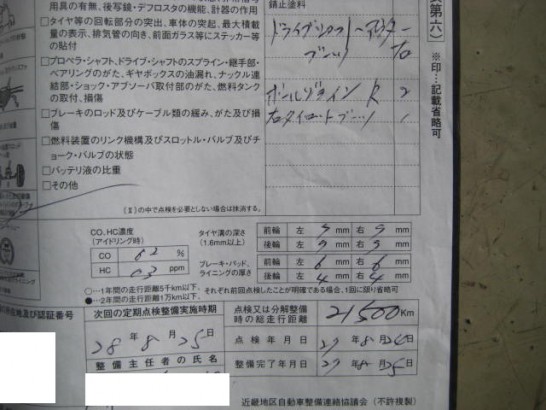 用具の有無、後写鏡・デフロスタの機能、計器の作用
□タイヤ等の回転部分の突出、車体の突起、最大積載
量の表示、排気管の向き、前面ガラス等にステッカー等
の貼付
□プロペラ・シャフト、ドライブ・シャフトのスプライン・継手部・
ベアリングのがた、ギヤボックスの油漏れ、ナックル連
結部・ショック・アブソーバ取付部のがた、燃料タンク
の取付、損傷
□ブレーキのロッド及びケーブル類の緩み、がた及び損
傷
□燃料装置のリンク機構及びスロットル・バルブ及びチ
ョーク・バルブの状態
□バッテリ液の比重
□その他
(※の中で点検を必要としない場合は抹消する。)
錆止塗料
ドライブシャフトアウター
ブーツ 右
ボールジョイント R 2
右タイロッドブーツ 1
第六)
※印…記載省略可
CO、HC濃度
(アイドリング時)
CO %
HC ppm
タイヤ溝の深さ
(1.6mm以上)
前輪 左 5 mm 右 5 mm
後輪 左 5 mm 右 5 mm
ブレーキ・パッド、
ライニングの厚さ
前輪 左 6 mm 右 6 mm
後輪 左 4 mm 右 4 mm
○…1年間の走行距離5千km以下、
●…2年間の走行距離1万km以下、
それぞれ前回点検したことが明確である場合、1回に限り省略可
所在地及び認証番号
次回の定期点検整備実施時期
28 年 8 月 25 日
整備主任者の氏名
点検又は分解整備
時の総走行距離
21500 Km
点検年月日 27 年 8 月 26 日
整備完了年月日 27 年 8 月 25 日
近畿地区自動車整備連絡協議会(不許複製)